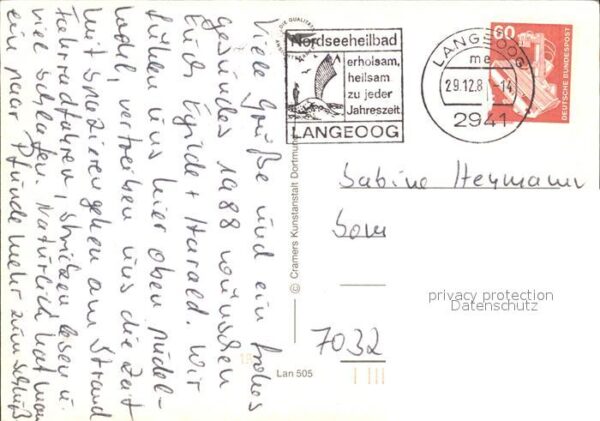 Viele Grüße und ein frohes
gesundes 1988 wünschen
Euch Egilde + Harald. Wir
fühlen uns hier oben pudel-
wohl, vertreiben uns die Zeit
mit spazierengehen am Strand
Fahrradfahren, stricken, lesen u.
viel schlafen. Natürlich hat man
ein paar Pfunde mehr zum Schluß
DIE QUALITÄT
Nordseeheilbad
erholsam,
heilsam
zu jeder
Jahreszeit
LANGEOOG
LANGEOOG
me
29.12.8 -14
2941
60
DEUTSCHE BUNDESPOST
© Cramers Kunstanstalt Dortmund
Lan 505
Sabine Heymann
7032
privacy protection
Datenschutz